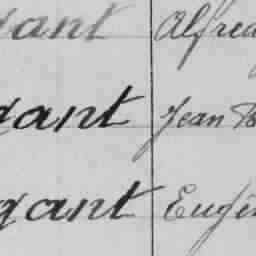 gant Alfred
gant Jean B
gant Eugèn